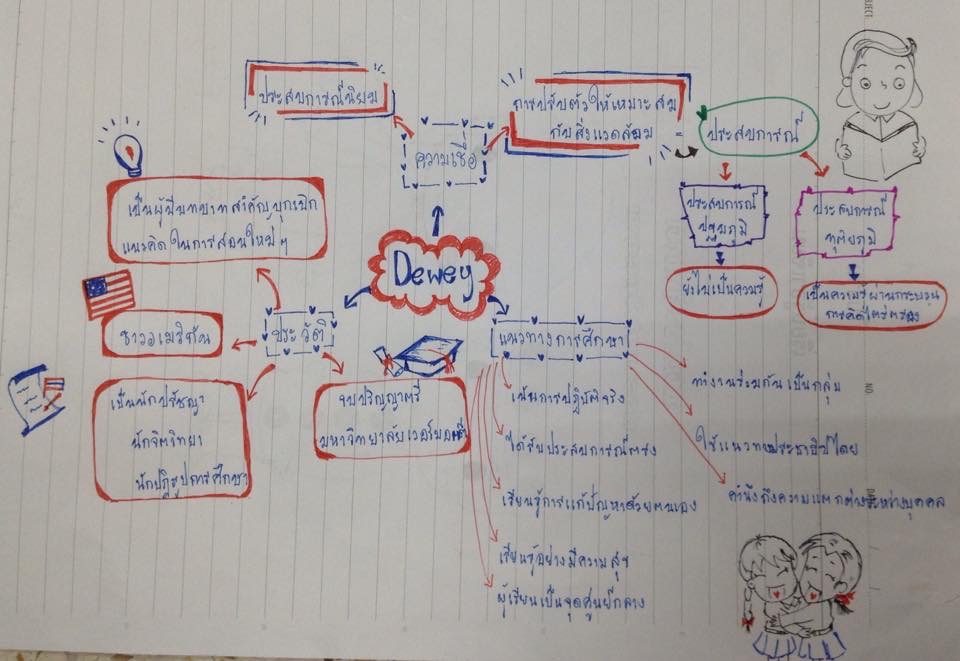 ประสบการณ์นิยม
ความเชื่อ
การปรับตัวให้เหมาะสม
กับสิ่งแวดล้อม
ประสบการณ์
ประสบการณ์
ปฐมภูมิ
ประสบการณ์
ทุติยภูมิ
ยังไม่เป็นความรู้
เป็นความรู้ผ่านกระบวน
การคิดไตร่ตรอง
เป็นผู้มีบทบาทสำคัญบุกเบิก
แนวคิดในการสอนใหม่ๆ
Dewey
ประวัติ
ชาวอเมริกัน
เป็นนักปรัชญา
นักจิตวิทยา
นักปฏิรูปการศึกษา
จบปริญญาตรี
มหาวิทยาลัยเวอร์มอนต์
แนวทางการศึกษา
เน้นการปฏิบัติจริง
ได้รับประสบการณ์ตรง
เรียนรู้การแก้ปัญหาด้วยตนเอง
เรียนรู้อย่างมีความสุข
ผู้เรียนเป็นจุดศูนย์กลาง
ทำงานร่วมกันเป็นกลุ่ม
ใช้แนวทางประชาธิปไตย
คำนึงถึงความแตกต่างระหว่างบุคคล
NO